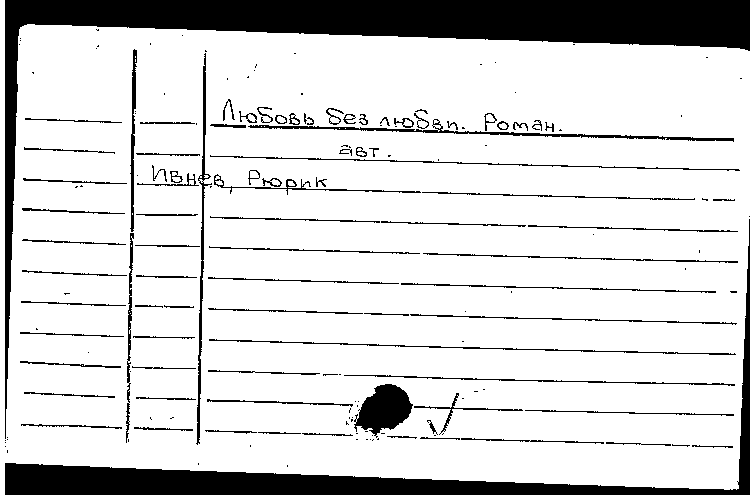 Любовь без любви. Роман.
авт.
Ивнев, Рюрик